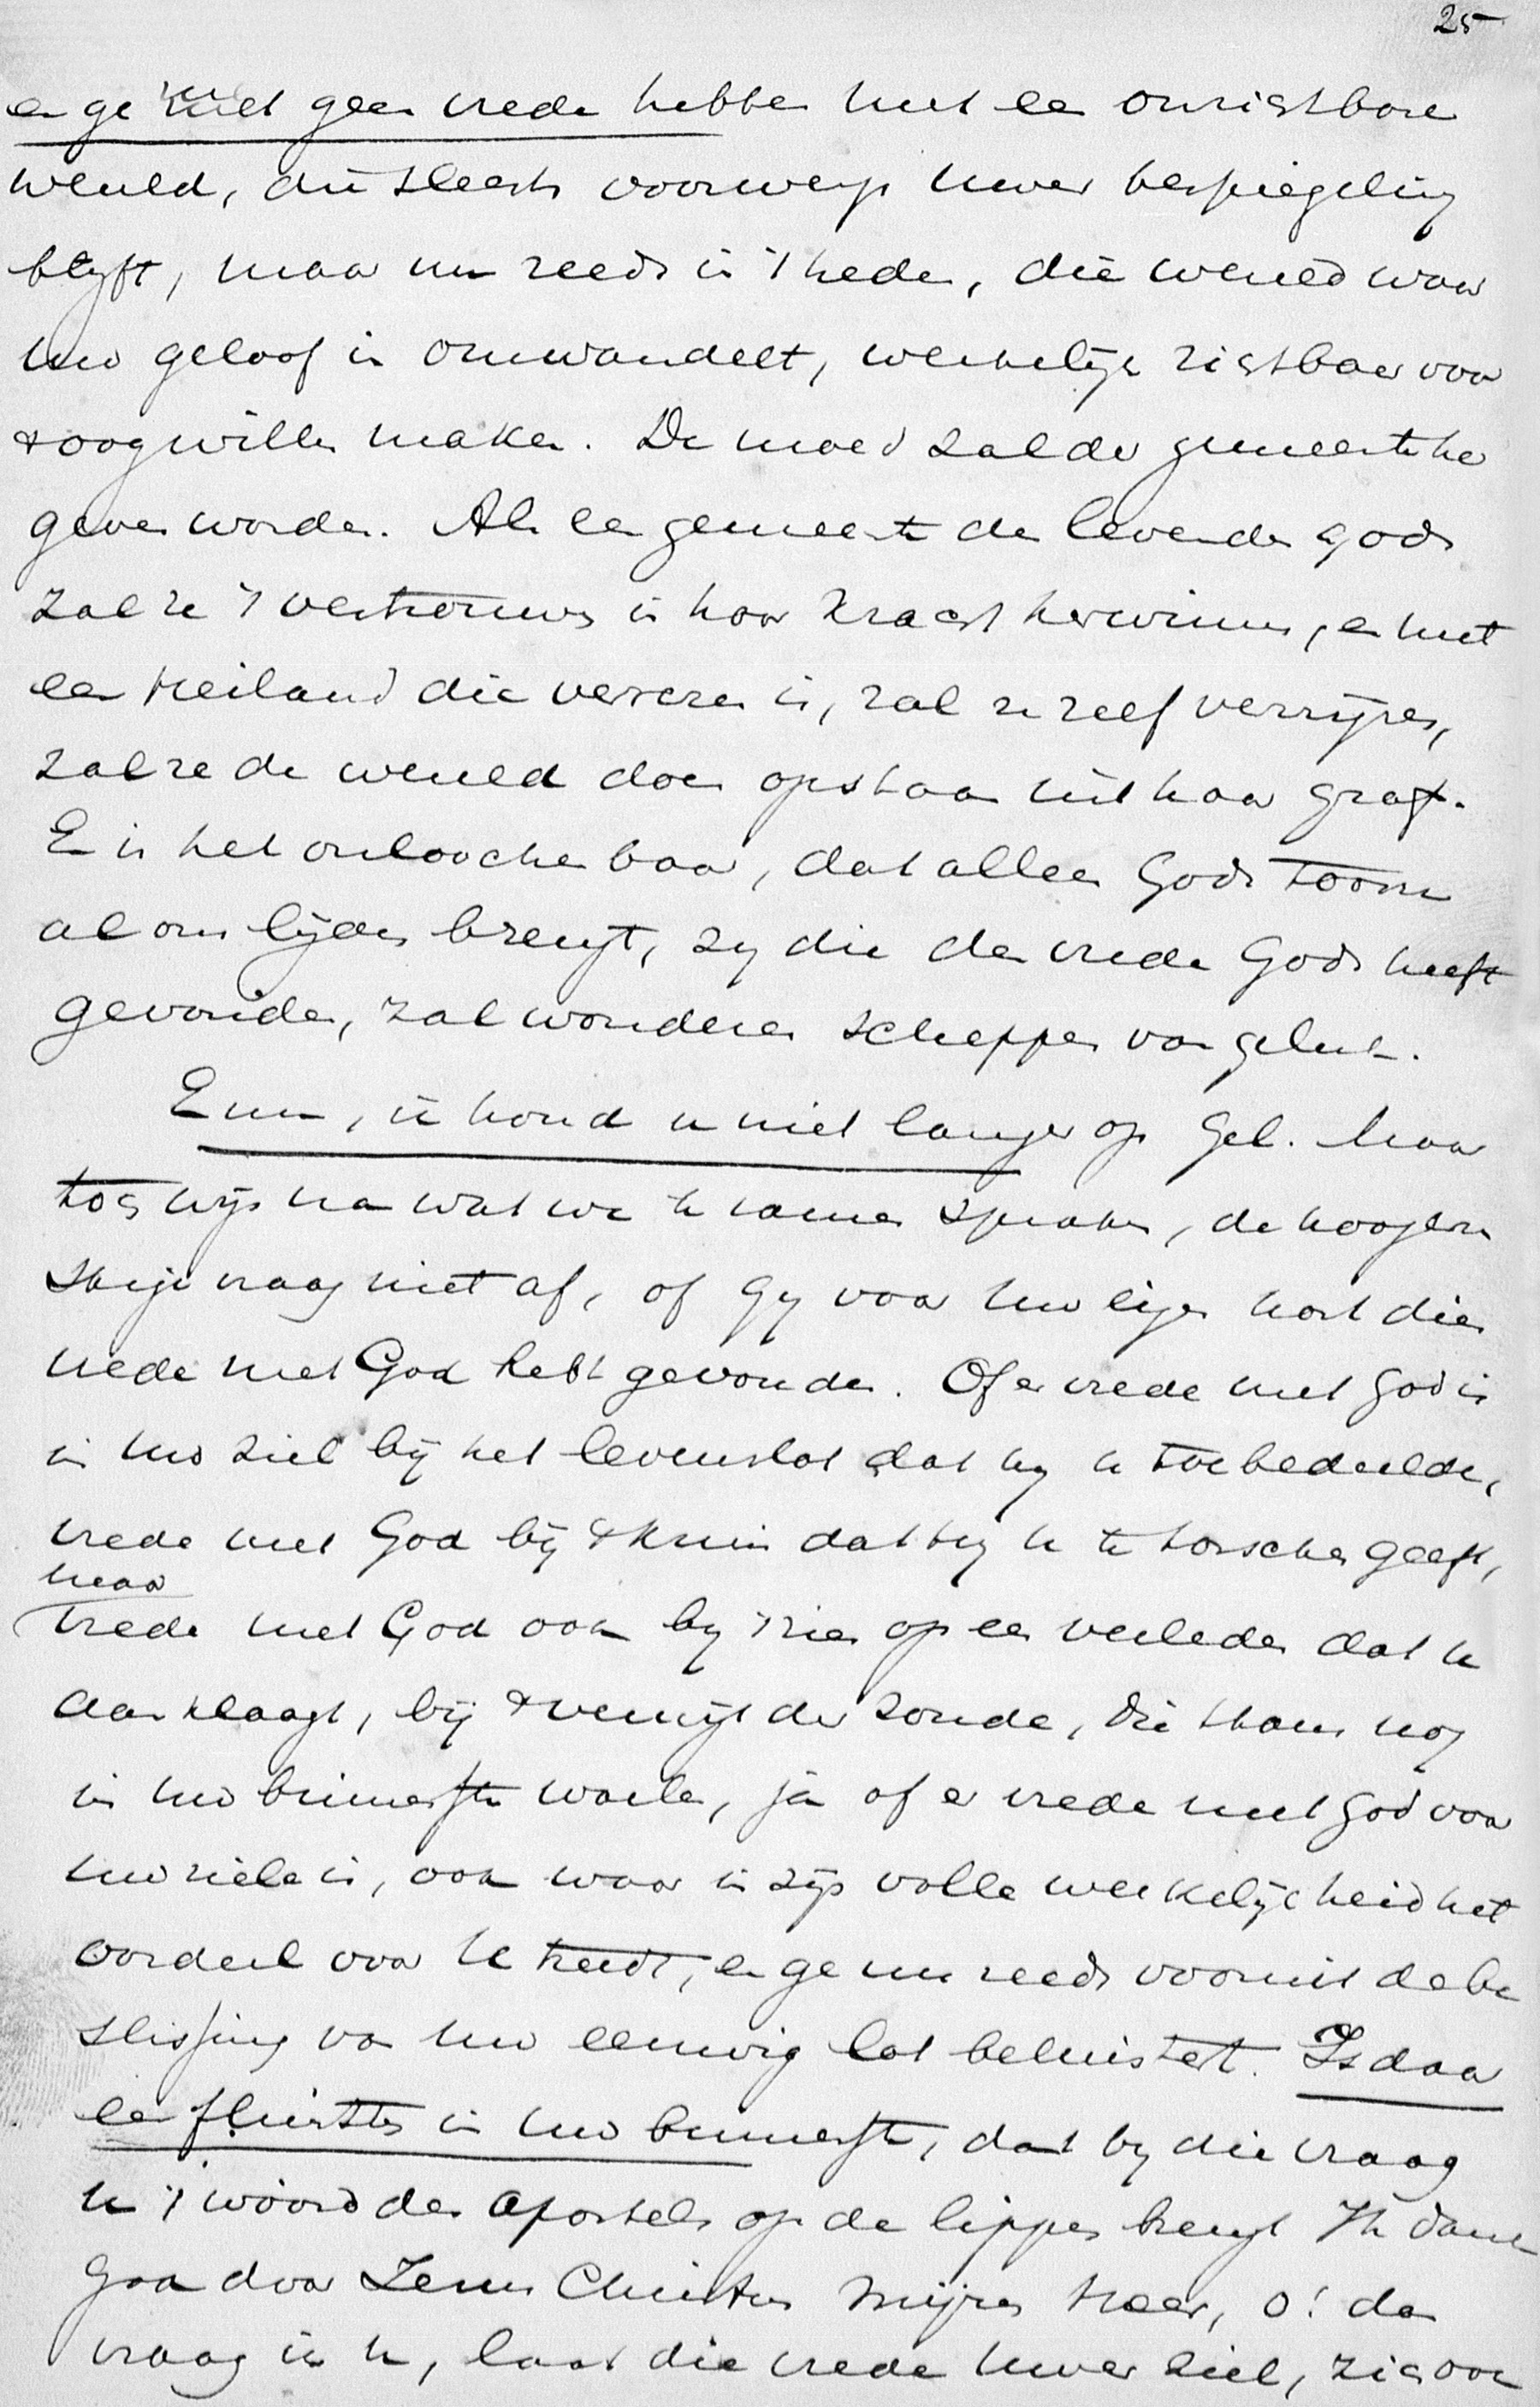 25
en ge zult geen vrede hebben met een onzichtbare
wereld, die steeds voorwerp uwer bespiegeling
blyft, maar nu reeds in 't heden, die wereld waar
uw geloof in omwandelt, werkelijk zichtbaar voor
't oog willen maken. De moed zal der gemeente her
geven worden. Als een gemeente des levenden Gods
zal ze 't vertrouwen in haar kracht herwinnen, en met
een Heiland die verrezen is, zal ze zelf verrijzen,
zal ze de wereld doen opstaan uit haar graf.
En is het onloochenbaar, dat alleen Gods toorn
alom lijden brengt, zy die den vrede Gods heeft
gevonden, zal wonderen scheppen van geluk.
En nu, ik houd u niet langer op Gel. Maar
toch wijs na wat we te samen spraken, de hoogern
stige vraag niet af, of gy voor uw eigen hart dien
vrede met God hebt gevonden. Of er vrede met God is
in uw ziel bij het levenslot dat hy u toebedeelde,
vrede met God bij 't kruis dat hy u te torschen geeft,
maar
vrede met God ook by 't zien op een verleden dat u
aanklaagt, bij 't venijn der zonde, die thans nog
in uw binnenste woelen, ja of er vrede met God voor
uw ziele is, ook waar in zijn volle werkelijkheid het
oordeel voor U treedt, en ge nu reeds vooruit de be
slissing van uw eeuwig lot beluistert. Is daar
een fluistren in uw binnenste, dat by die vraag
u 't woord des Apostels op de lippen brengt Ik dank
God door Jezus Christus mijnen Heer, o! dan
vraag ik u, laat die vrede uwer ziel, zich ook